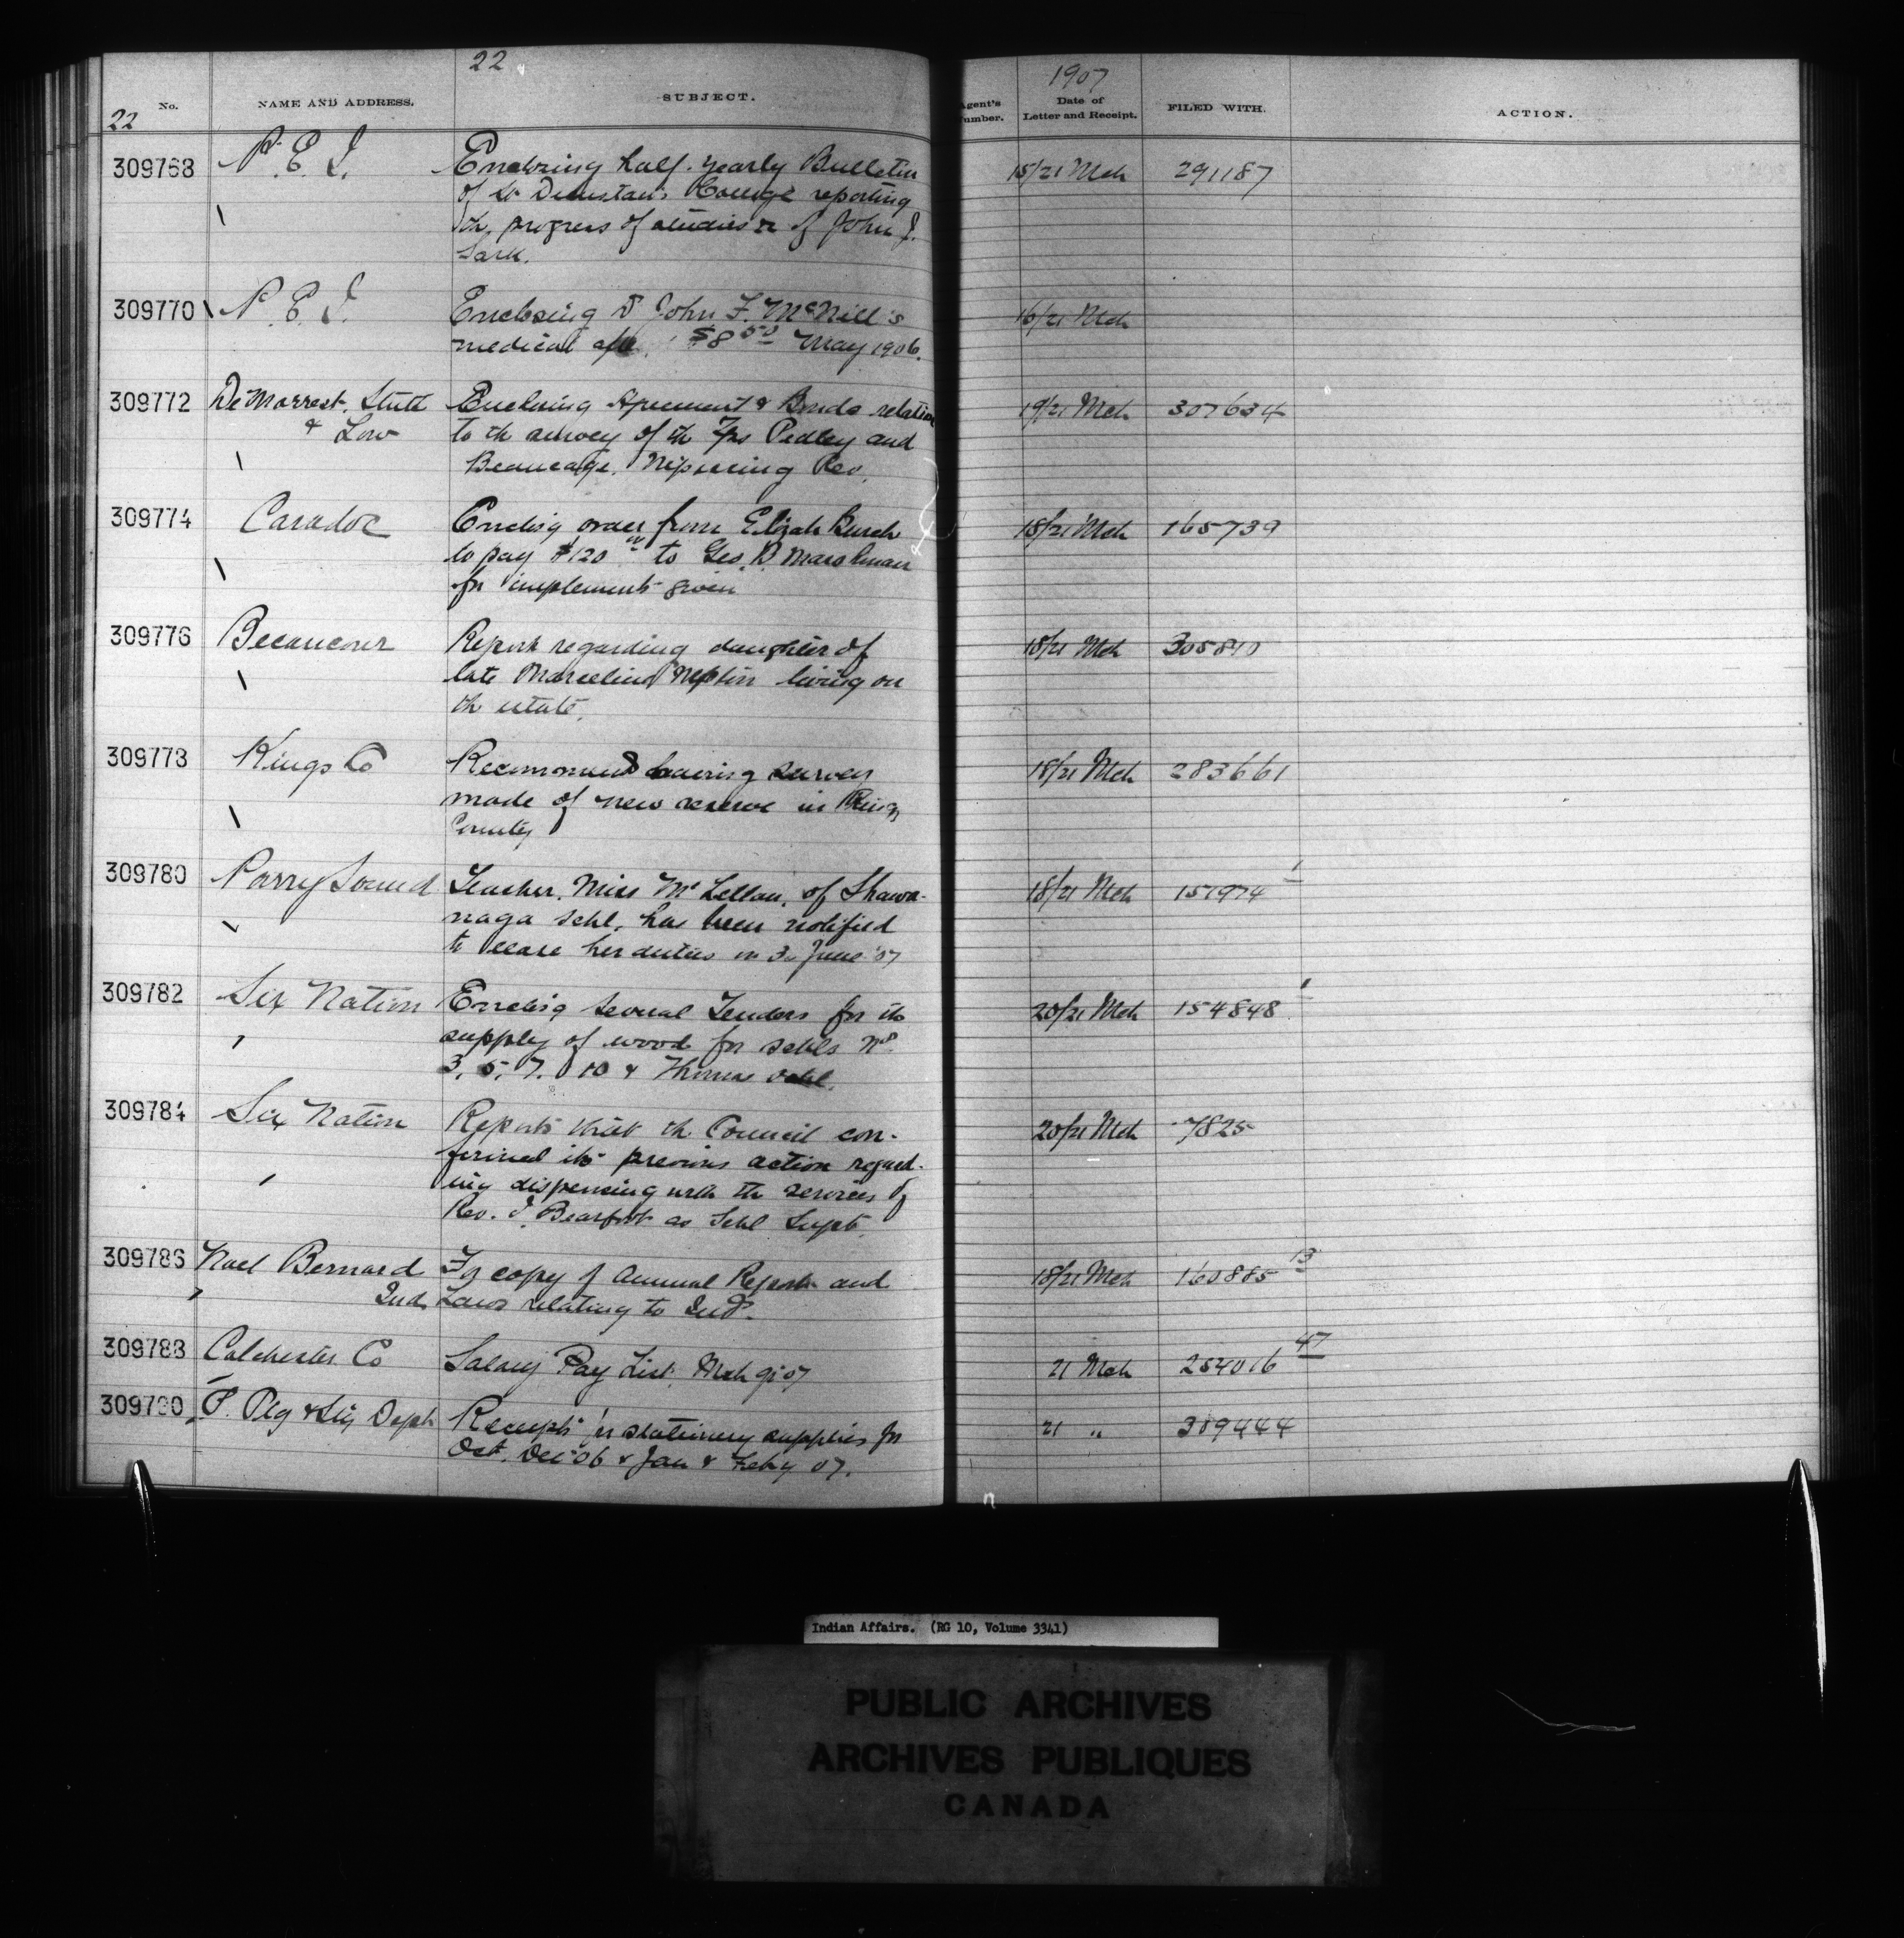 22
1907
No.
NAME AND ADDRESS.
SUBJECT.
Agent's Number.
Date of Letter and Receipt.
FILED WITH.
ACTION.
22
309768 P. E. I. Enclosing half-yearly Bulletin 15/21 Mch 291187
of St Dunstan's College reporting
the progress of studies &c of John J.
Sark.
309770 P. E. I. Enclosing Dr John F. McNeill's 16/21 Mch
medical a/c $8 50 May 1906.
309772 De Morrest, Stull Enclosing Agreement & Bonds relation 19/21 Mch 307634
& Low to th survey of th Tps Pedley and
Beaucage. Nipissing Res.
309774 Caradoc Enclosg order from Elijah Burch 18/21 Mch 165739
to pay $120 00 to Geo. D. Marshman
for implements given
309776 Becancour Report regarding daughter of 18/21 Mch 305810
late Marceline Neptin living on
th estate.
309778 Kings Co Recommends having survey 18/21 Mch 283661
made of new reserve in Kings
County
309780 Parry Sound Teacher, Miss McLellan, of Shawa- 18/21 Mch 151974 1
naga schl. has been notified
to cease her duties on 30 June '07
309782 Six Nation Enclosg several Tenders for th 20/21 Mch 154848 1
supply of wood for schls Nos
3, 5, 7, 10 & Thomas schl.
309784 Six Nation Reports that th Council con- 20/21 Mch 7825
firmed its previous action regard-
ing dispensing with th services of
Rev. I. Bearfoot as Schl Supt.
309786 Noel Bernard For copy of Annual Report and 18/21 Mch 160885 13
Ind. Laws relating to Inds.
309788 Colchester Co Salary Pay List, Mch qr 07 21 Mch 254016 47
309790 P. Ptg & Sty Dept Receipts for stationery supplies for 21 " 309444
Oct. Dec '06 & Jan & Feby 07.
Indian Affairs. (RG 10, Volume 3341)
PUBLIC ARCHIVES
ARCHIVES PUBLIQUES
CANADA